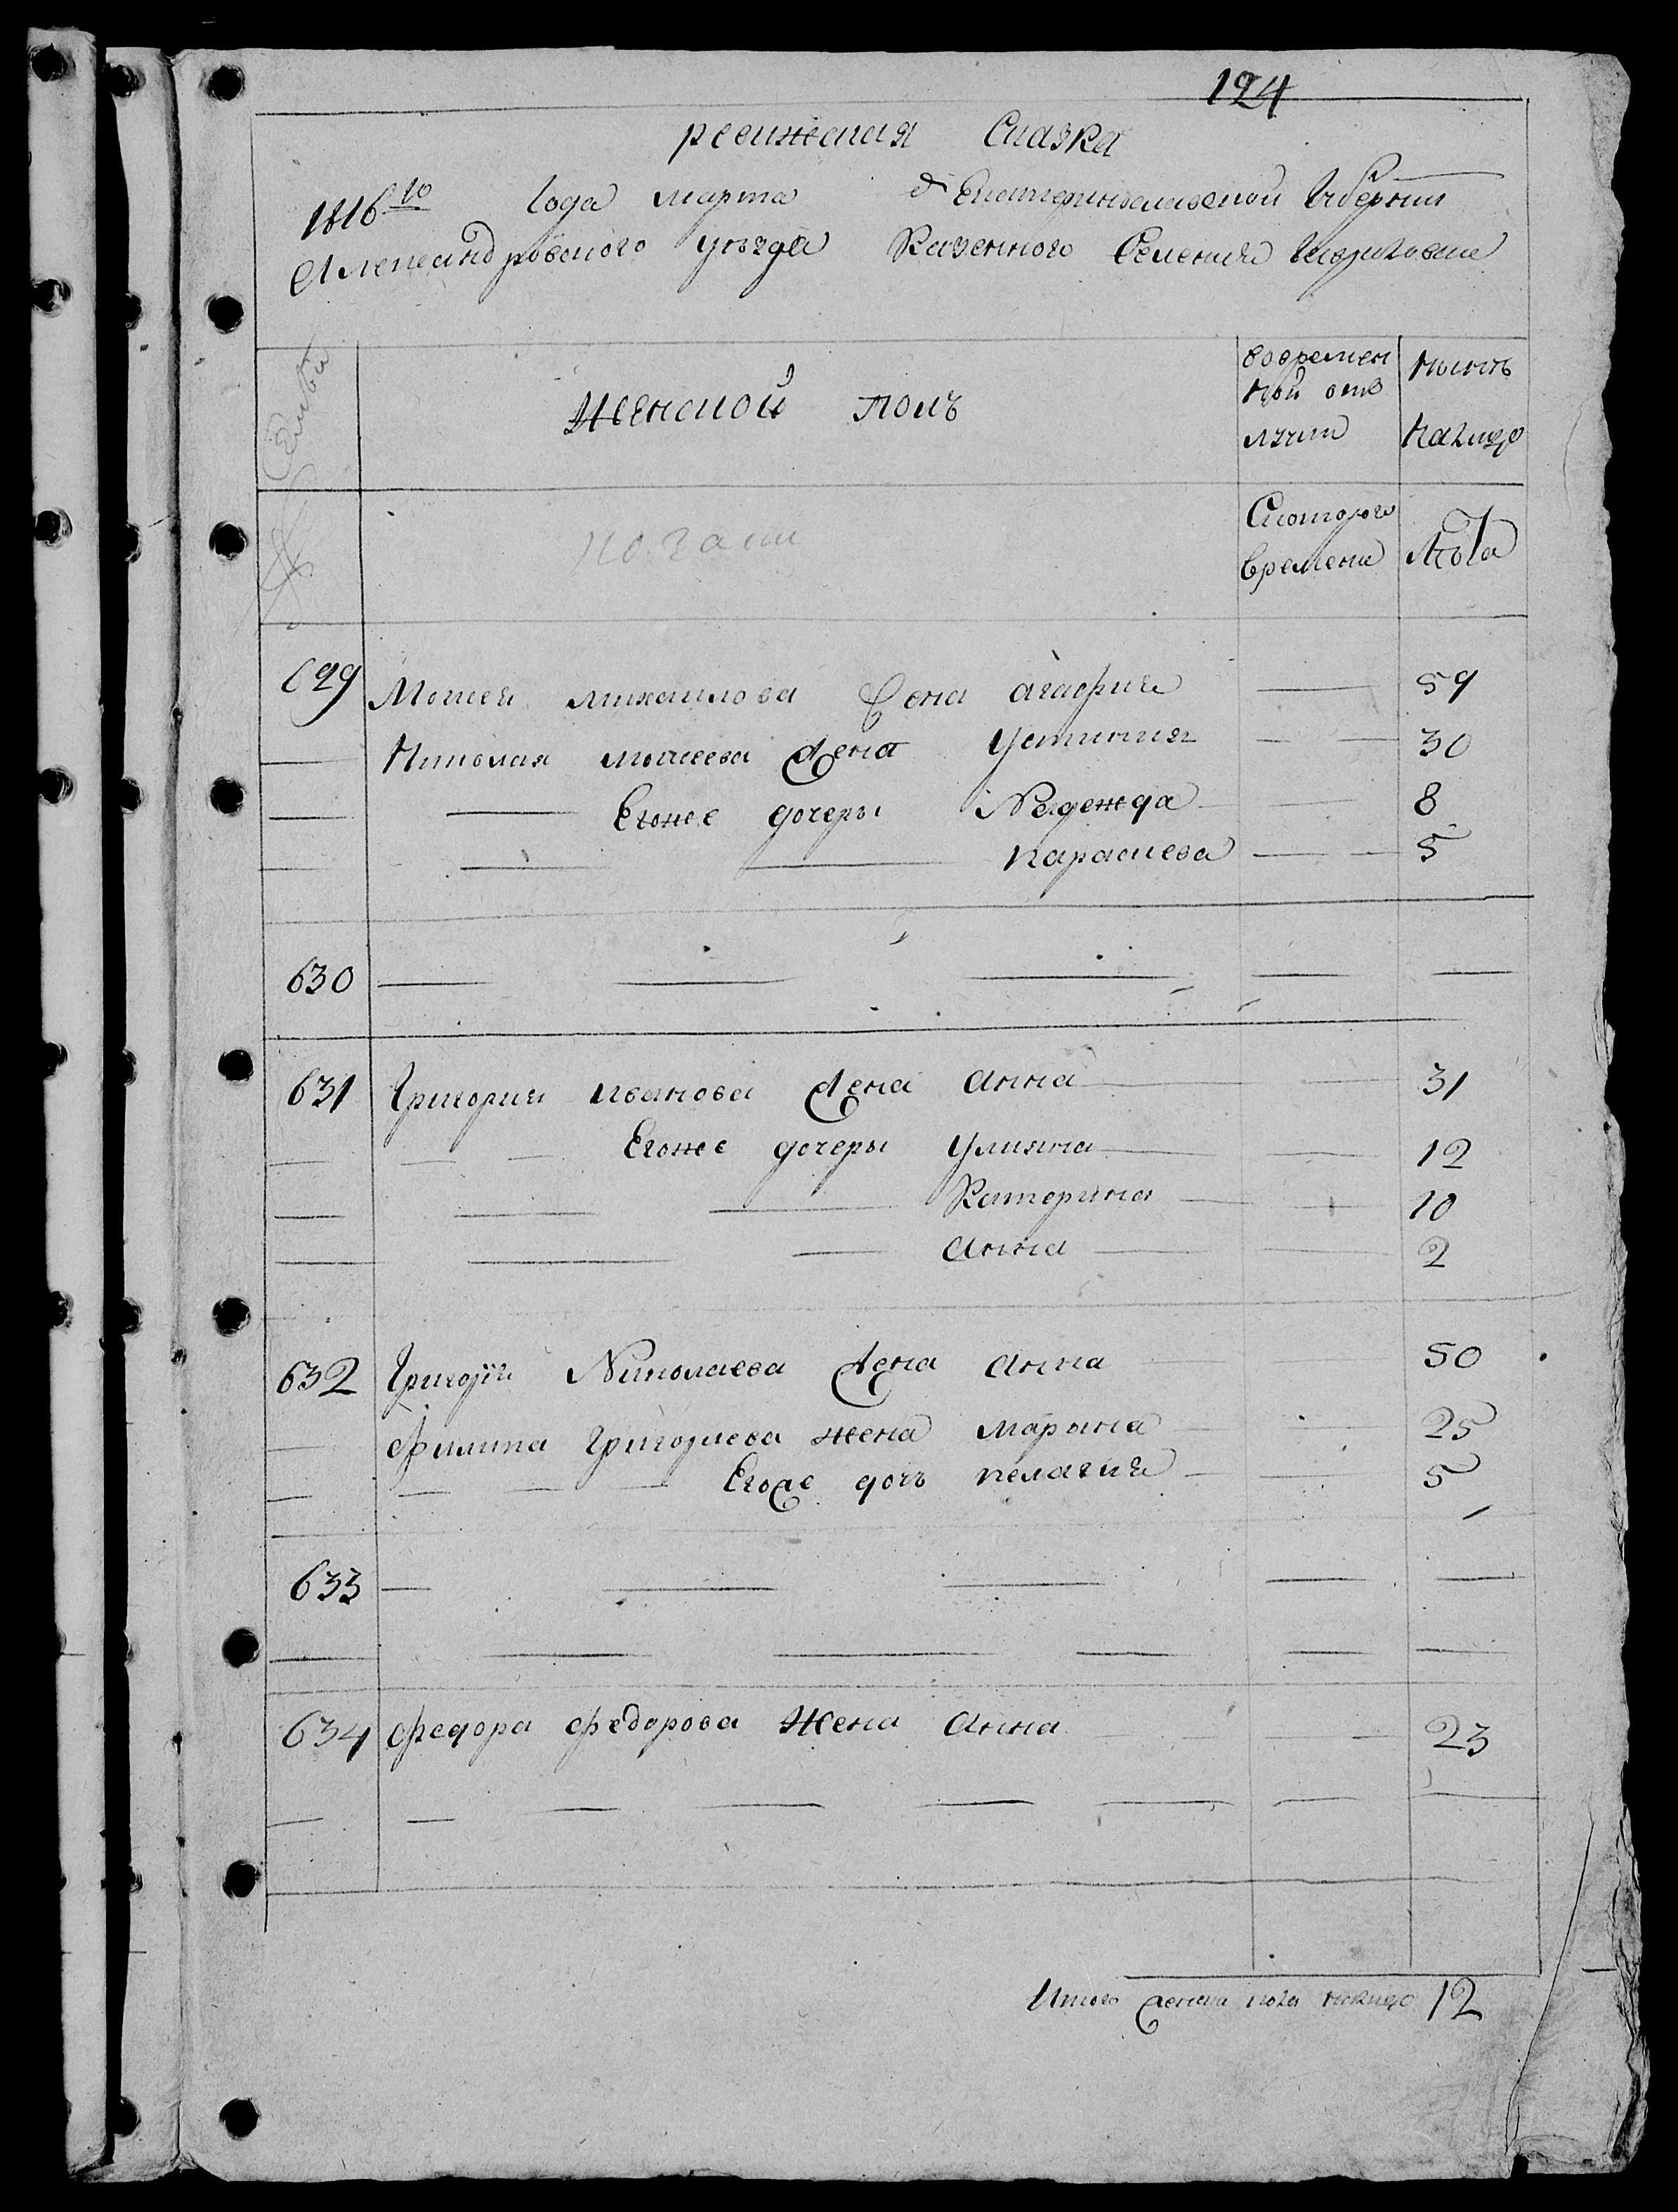 124
ревижская Сказка
1816го Года марта д Екатеринославской Губернии
Александровского уезда Казенного Селения
Семьи
Женской полъ
вовремен
ной отл
лучки
ныне
налицо
Скоторого
времени
Лета
629 Мосея михаилова Жена агафия — 59
— Николая мосеева Жена Устиния — — 30
— — Егоже дочеры Надежда — 8
— — — параскева — — 5
630 — — — — —
631 Григория иванова Жена анна — — 31
— — — Егоже дочеры Улияна — — 12
— — — Катерина — — 10
— — — анна — — 2
632 Григория Николаева Жена анна 50
— Филипа Григориева жена марина — — 25
— — — — Егоже дочъ пелагия — — 5
633 — — — — —
— — — — — —
634 Федора Федорова Жена анна — — — 23
— — — — — — —
Итого женска пола налицо 12